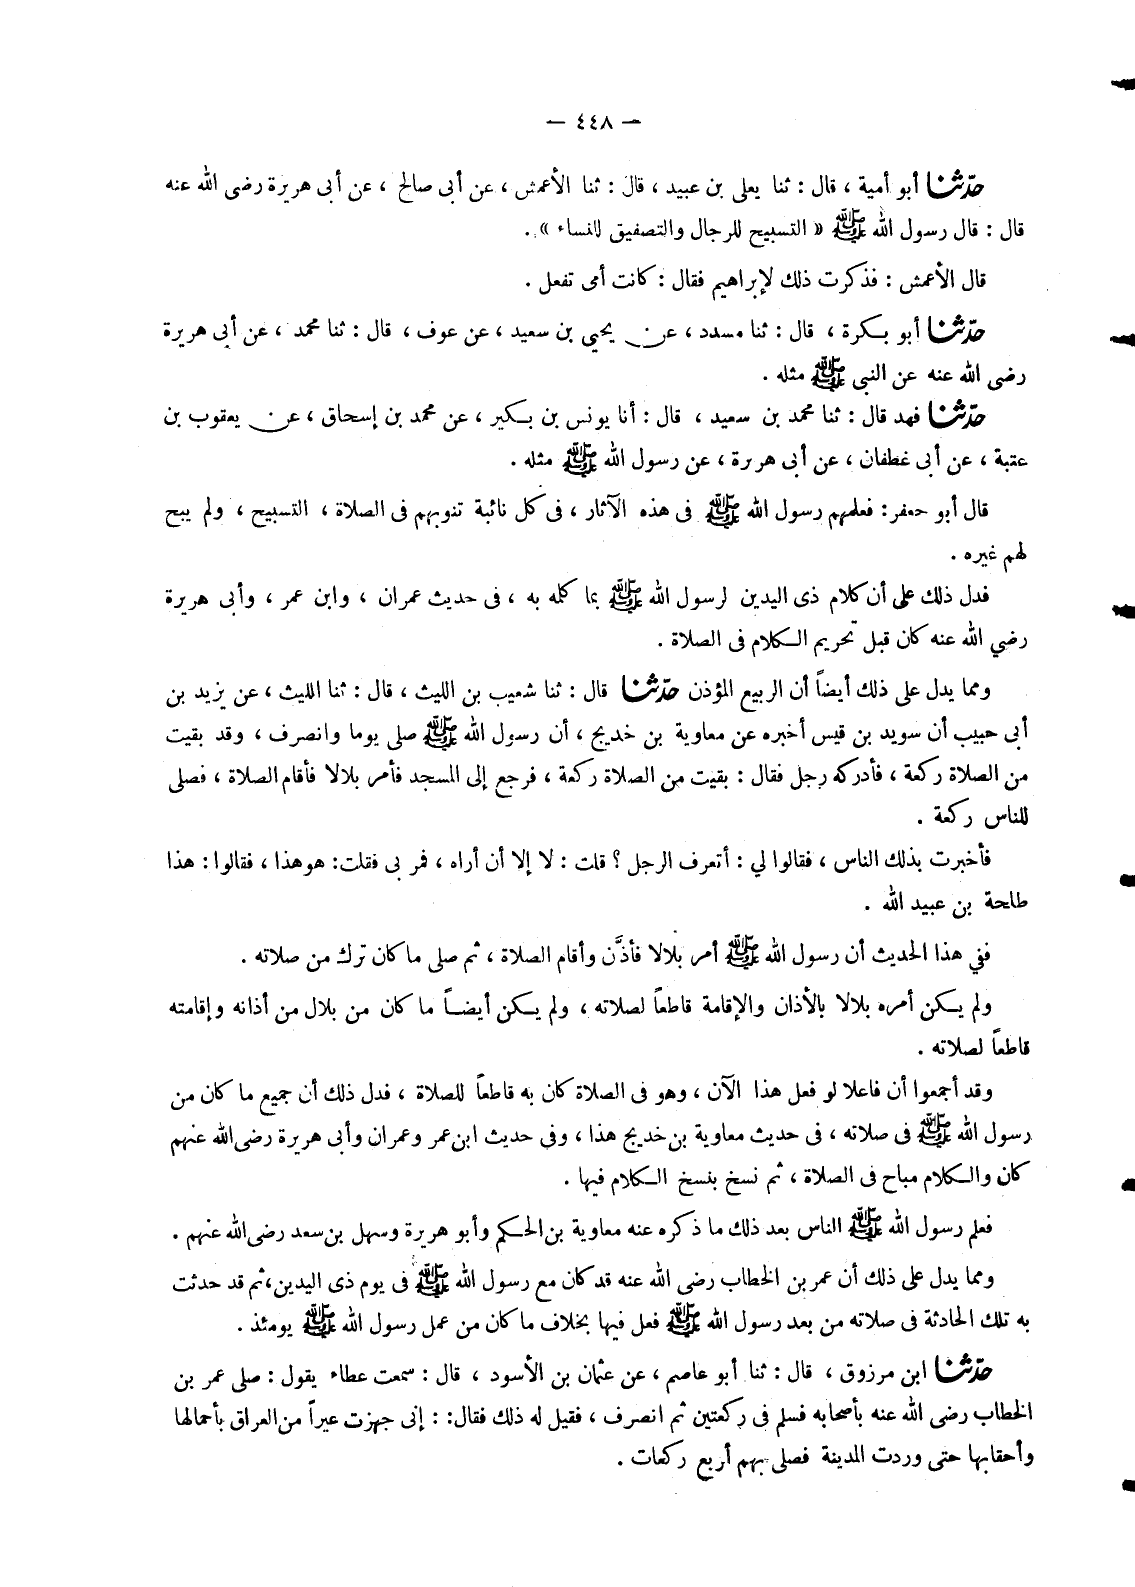 — ٤٤٨ —
حدّثنا أبو أمية ، قال : ثنا يعلى بن عبيد ، قال : ثنا الأعمش ، عن أبى صالح ، عن أبى هريرة رضى الله عنه
قال : قال رسول الله ﷺ « التسبيح للرجال والتصفيق للنساء » .
قال الأعمش : فذكرت ذلك لإبراهيم فقال : كانت أمى تفعل .
حدّثنا أبو بكرة ، قال : ثنا مسدد ، عن يحيى بن سعيد ، عن عوف ، قال : ثنا محمد ، عن أبى هريرة
رضى الله عنه عن النبى ﷺ مثله .
حدّثنا فهد قال : ثنا محمد بن سعيد ، قال : أنا يونس بن بكير ، عن محمد بن إسحاق ، عن يعقوب بن
عتبة ، عن أبى غطفان ، عن أبى هريرة ، عن رسول الله ﷺ مثله .
قال أبو جعفر : فعلمهم رسول الله ﷺ فى هذه الآثار ، فى كل نائبة تنوبهم فى الصلاة ، التسبيح ، ولم يبح
لهم غيره .
فدل ذلك على أن كلام ذى اليدين لرسول الله ﷺ بما كلمه به ، فى حديث عمران ، وابن عمر ، وأبى هريرة
رضي الله عنه كان قبل تحريم الكلام فى الصلاة .
ومما يدل على ذلك أيضاً أن الربيع المؤذن حدّثنا قال : ثنا شعيب بن الليث ، قال : ثنا الليث ، عن يزيد بن
أبى حبيب أن سويد بن قيس أخبره عن معاوية بن خديج ، أن رسول الله ﷺ صلى يوما وانصرف ، وقد بقيت
من الصلاة ركعة ، فأدركه رجل فقال : بقيت من الصلاة ركعة ، فرجع إلى المسجد فأمر بلالا فأقام الصلاة ، فصلى
للناس ركعة .
فأخبرت بذلك الناس ، فقالوا لي : أتعرف الرجل ؟ قلت : لا إلا أن أراه ، فمر بى فقلت : هو هذا ، فقالوا : هذا
طلحة بن عبيد الله .
ففي هذا الحديث أن رسول الله ﷺ أمر بلالا فأذَّن وأقام الصلاة ، ثم صلى ما كان ترك من صلاته .
ولم يكن أمره بلالا بالأذان والإقامة قاطعاً لصلاته ، ولم يكن أيضاً ما كان من بلال من أذانه وإقامته
قاطعاً لصلاته .
وقد أجمعوا أن فاعلا لو فعل هذا الآن ، وهو فى الصلاة كان به قاطعاً للصلاة ، فدل ذلك أن جميع ما كان من
رسول الله ﷺ فى صلاته ، فى حديث معاوية بن خديج هذا ، وفى حديث ابن عمر وعمران وأبى هريرة رضى الله عنهم
كان والكلام مباح فى الصلاة ، ثم نسخ بنسخ الكلام فيها .
فعلم رسول الله ﷺ الناس بعد ذلك ما ذكره عنه معاوية بن الحكم وأبو هريرة وسهل بن سعد رضى الله عنهم .
ومما يدل على ذلك أن عمر بن الخطاب رضى الله عنه قد كان مع رسول الله ﷺ فى يوم ذى اليدين ، ثم قد حدثت
به تلك الحادثة فى صلاته من بعد رسول الله ﷺ فعل فيها بخلاف ما كان من عمل رسول الله ﷺ يومئذ .
حدّثنا ابن مرزوق ، قال : ثنا أبو عاصم ، عن عثمان بن الأسود ، قال : سمعت عطاء يقول : صلى عمر بن
الخطاب رضى الله عنه بأصحابه فسلم فى ركعتين ثم انصرف ، فقيل له ذلك فقال: : إنى جهزت عيراً من العراق بأحمالها
وأحقابها حتى وردت المدينة فصلى بهم أربع ركعات .